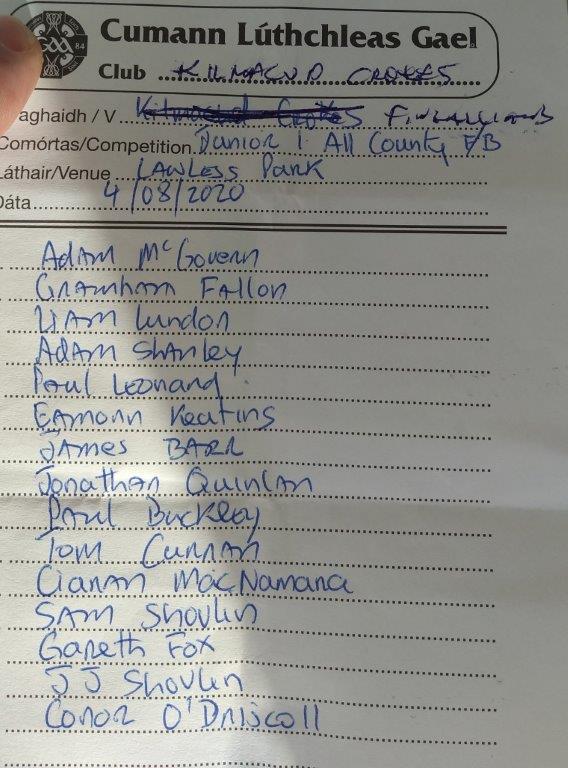 Cumann Lúthchleas Gael
Club KILMACUD CROKES
aghaidh / V. Kilmacud Crokes Fingallians
Comórtas/Competition. Junior 1 All County FB
Láthair/Venue LAWLESS Park
Dáta 4/08/2020
Adam McGovern
Gramham Fallon
Liam Lundon
Adam Shanley
Paul Leonard
Eamonn Keatins
James BARR
Jonathan Quinlan
Paul Buckley
Tom Curran
Ciaran MacNamara
Sam Shovlin
Gareth Fox
JJ Shovlin
Conor O'Driscoll